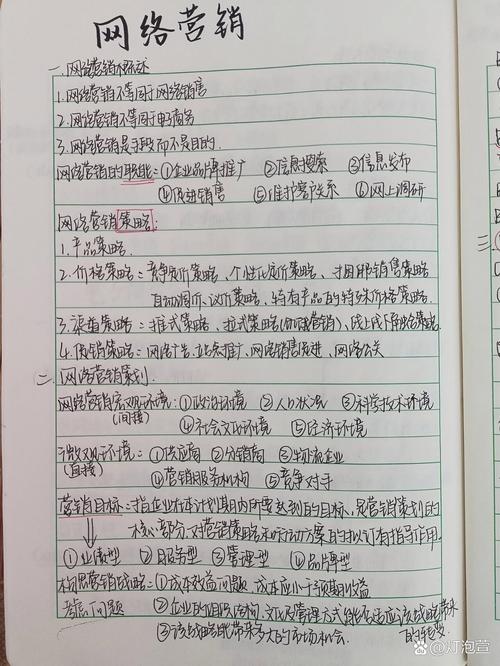 网络营销
一.网络营销概述
1.网络营销不等同于网络销售
2.网络营销不等同于电子商务
3.网络营销是手段而不是目的.
网络营销的职能:①企业品牌推广 ②信息搜索 ③信息发布
④促进销售 ⑤维护客户关系 ⑥网上调研
网络营销策略:
1.产品策略.
2.价格策略:竞争定价策略、个性化定价策略、折扣销售策略
自动调价、议价策略、特有产品的特殊价格策略.
3.渠道策略:推式策略、拉式策略(加强营销)、线上线下
4.促销策略:网络广告、站点推广、网络销售促进、网络公关
二.网络营销策划.
网络营销宏观环境:①政治环境 ②人口状况 ③科学技术环境
(间接) ④社会文化环境 ⑤经济环境
微观环境:①供应商 ②分销商 ③物流企业
(直接) ④营销服务机构 ⑤竞争对手
营销目标:指企业在本计划期内所要达到的目标,是营销策划的
核心部分,对营销策略和行动方案的拟订有指导作用.
①业绩型 ②服务型 ③管理型 ④品牌型
构思营销战略:①成本效益问题 成本应小于预期收益
考虑问题 ②企业的组织结构、文化及管理方式能否适应该战略带来
的转变
③该战略能带来多大的市场机会.
三.
灯泡萱